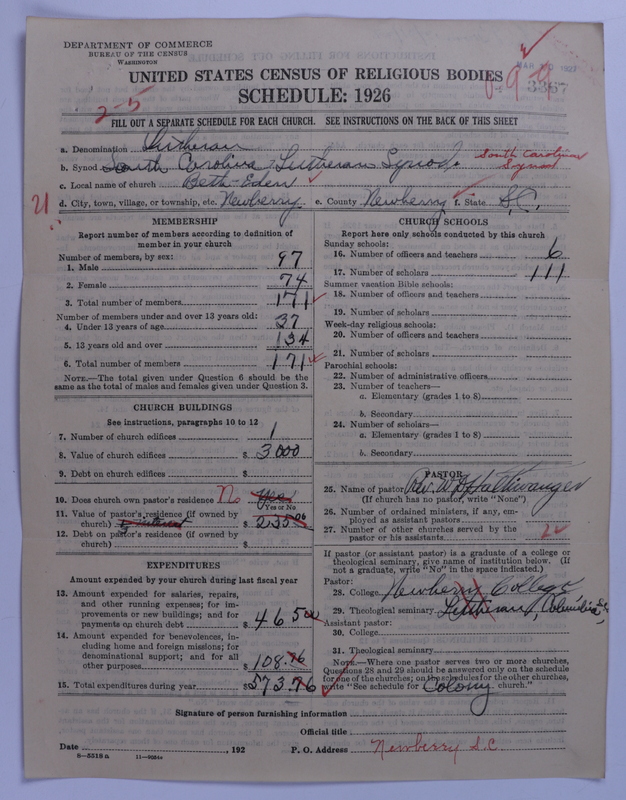 DEPARTMENT OF COMMERCE
BUREAU OF THE CENSUS
WASHINGTON
UNITED STATES CENSUS OF RELIGIOUS BODIES
SCHEDULE: 1926
2-5
9-9
3357
FILL OUT A SEPARATE SCHEDULE FOR EACH CHURCH. SEE INSTRUCTIONS ON THE BACK OF THIS SHEET
a. Denomination Lutheran
b. Synod South Carolina Lutheran Synod. South Carolina Synod
c. Local name of church Beth-Eden
21
d. City, town, village, or township, etc. Newberry e. County Newberry f. State S.C.
MEMBERSHIP
Report number of members according to definition of
member in your church
Number of members, by sex:
1. Male 97
2. Female 74
3. Total number of members 171
Number of members under and over 13 years old:
4. Under 13 years of age 37
5. 13 years old and over 134
6. Total number of members 171
NOTE.—The total given under Question 6 should be the
same as the total of males and females given under Question 3.
CHURCH BUILDINGS
See instructions, paragraphs 10 to 12
7. Number of church edifices 1
8. Value of church edifices $ 3000
9. Debt on church edifices $
10. Does church own pastor's residence No Yes
Yes or No
11. Value of pastor's residence (if owned by
church) $
12. Debt on pastor's residence (if owned by
church) $
EXPENDITURES
Amount expended by your church during last fiscal year
13. Amount expended for salaries, repairs,
and other running expenses; for im-
provements or new buildings; and for
payments on church debt $ 465.00
14. Amount expended for benevolences, in-
cluding home and foreign missions; for
denominational support; and for all
other purposes $ 108.76
15. Total expenditures during year $573.76
CHURCH SCHOOLS
Report here only schools conducted by this church
Sunday schools:
16. Number of officers and teachers 6
17. Number of scholars 111
Summer vacation Bible schools:
18. Number of officers and teachers
19. Number of scholars
Week-day religious schools:
20. Number of officers and teachers
21. Number of scholars
Parochial schools:
22. Number of administrative officers
23. Number of teachers—
a. Elementary (grades 1 to 8)
b. Secondary
24. Number of scholars—
a. Elementary (grades 1 to 8)
b. Secondary
PASTOR
25. Name of pastor Rev. Haltiwanger
(If church has no pastor, write "None")
26. Number of ordained ministers, if any, em-
ployed as assistant pastors
27. Number of other churches served by the
pastor or his assistants
If pastor (or assistant pastor) is a graduate of a college or
theological seminary, give name of institution below. (If
not a graduate, write "No" in the space indicated.)
Pastor:
28. College Newberry College
29. Theological seminary Lutheran, Columbia, S.C.
Assistant pastor:
30. College
31. Theological seminary
NOTE.—Where one pastor serves two or more churches,
Questions 28 and 29 should be answered only on the schedule
for one of the churches; on the schedules for the other churches,
write "See schedule for Colony church."
Signature of person furnishing information
Official title
Date , 192 P. O. Address Newberry S.C.